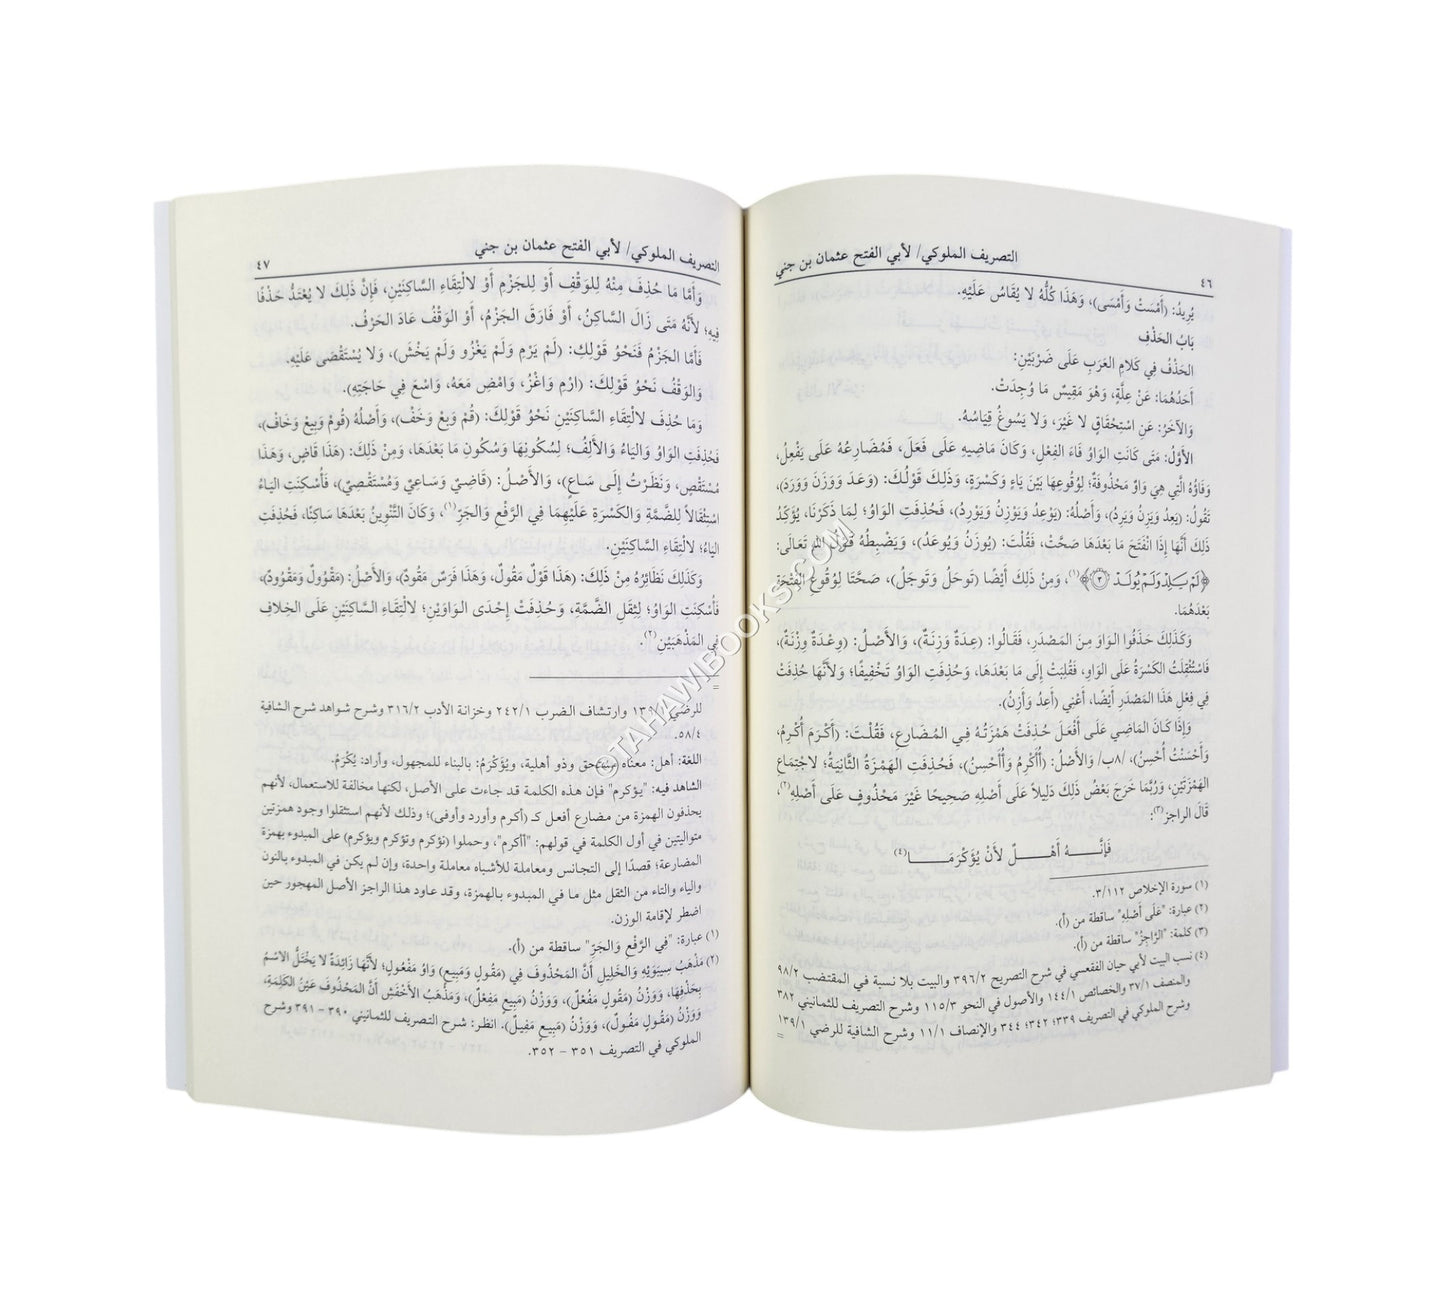 التصريف الملوكي/ لأبي الفتح عثمان بن جني
٤٦
يُرِيدُ: (أَمْسَتْ وَأَمْسَى)، وَهَذَا كُلُّهُ لا يُقَاسُ عَلَيْهِ.
بَابُ الحَذْف
الحَذْفُ فِي كَلامِ العَرَبِ عَلَى ضَرْبَيْنِ:
أَحَدُهُمَا: عَنْ عِلَّةٍ، وَهْوَ مَقِيسٌ مَا وُجِدَتْ.
وَالآخَرُ: عَنِ اسْتِحْقَاقٍ لا غَيْرَ، وَلا يَسُوغُ قِيَاسُهُ.
الأَوَّلُ: مَتَى كَانَتِ الوَاوُ فَاءَ الفِعْلِ، وَكَانَ مَاضِيهِ عَلَى فَعَلَ، فَمُضَارِعُهُ عَلَى يَفْعِلُ،
وَفَاؤُهُ الَّتِي هِيَ وَاوٌ مَحْذُوفَةٌ؛ لِوُقُوعِهَا بَيْنَ يَاءٍ وَكَسْرَةٍ، وَذَلِكَ قَوْلُكَ: (وَعَدَ وَوَزَنَ وَوَرَدَ)،
تَقُولُ: (يَعِدُ وَيَزِنُ وَيَرِدُ)، وَأَصْلُهُ: (يَوْعِدُ وَيَوْزِنُ وَيَوْرِدُ)، فَحُذِفَتِ الوَاوُ؛ لِمَا ذَكَرْنَا، يُؤَكِّدُ
ذَلِكَ أَنَّهَا إِذَا انْفَتَحَ مَا بَعْدَهَا صَحَّتْ، فَقُلْتَ: (يُوزَنُ وَيُوعَدُ)، وَيَضْبِطُهُ قَوْلُ اللهِ تَعَالَى:
﴿لَمْ يَلِدْ وَلَمْ يُولَدْ ٣﴾(١)، وَمِنْ ذَلِكَ أَيْضًا (تَوحَلُ وَتَوجَلُ)، صَحَّتَا لِوُقُوعِ الفَتْحَةِ
بَعْدَهُمَا.
وَكَذَلِكَ حَذَفُوا الوَاوَ مِنَ المَصْدَرِ، فَقَالُوا: (عِدَةٌ وَزِنَةٌ)، وَالأَصْلُ: (وِعْدَةٌ وِزْنَةٌ)،
فَاسْتُثْقِلَتُ الكَسْرَةُ عَلَى الوَاوِ، فَقُلِبَتْ إِلَى مَا بَعْدَهَا، وَحُذِفَتِ الوَاوُ تَخْفِيفًا؛ وَلأَنَّهَا حُذِفَتْ
فِي فِعْلِ هَذَا المَصْدَرِ أَيْضًا، أَعْنِي (أَعِدُ وَأَزِنُ).
وَإِذَا كَانَ المَاضِي عَلَى أَفْعَلَ حُذِفَتْ هَمْزَتُهُ فِي المُضَارِعِ، فَقُلْتَ: (أَكْرَمَ أُكْرِمُ،
وَأَحْسَنْتُ أُحْسِنُ)، /٨ب/ وَالأَصْلُ: (أُأَكْرِمُ وَأُأَحْسِنُ)، فَحُذِفَتِ الهَمْزَةُ الثَّانِيَةُ؛ لاجْتِمَاعِ
الهَمْزَتَيْنِ، وَرُبَّمَا خَرَجَ بَعْضُ ذَلِكَ دَلِيلاً عَلَى أَصْلِهِ صَحِيحًا غَيْرَ مَحْذُوفٍ عَلَى أَصْلِهِ(٢)،
قَالَ الراجز(٣):
فَإِنَّـهُ أَهْـلٌ لأَنْ يُؤَكْرَمَـا(٤)
(١) سورة الإخلاص ٣/١١٢.
(٢) عبارة: "عَلَى أَصْلِهِ" ساقطة من (أ).
(٣) كلمة: "الرَّاجِزُ" ساقطة من (أ).
(٤) نسب البيت لأبي حيان الفقعسي في شرح التصريح ٣٩٦/٢ والبيت بلا نسبة في المقتضب ٩٨/٢
والمنصف ٣٧/١ والخصائص ١٤٤/١ والأصول في النحو ١١٥/٣ وشرح التصريف للثمانيني ٣٨٢
وشرح الملوكي في التصريف ٣٣٩؛ ٣٤٢؛ ٣٤٤ والإنصاف ١١/١ وشرح الشافية للرضي ١٣٩/١
=
التصريف الملوكي/ لأبي الفتح عثمان بن جني
٤٧
وَأَمَّا مَا حُذِفَ مِنْهُ لِلوَقْفِ أَوْ لِلجَزْمِ أَوْ لالْتِقَاءِ السَّاكِنَيْنِ، فَإِنَّ ذَلِكَ لا يُعْتَدُّ حَذْفًا
فِيهِ؛ لأَنَّهُ مَتَى زَالَ السَّاكِنُ، أَوْ فَارَقَ الجَزْمُ، أَوْ الوَقْفُ عَادَ الحَرْفُ.
فَأَمَّا الجَزْمُ فَنَحْوُ قَوْلِكَ: (لَمْ يَرْمِ وَلَمْ يَغْزُو وَلَمْ يَخْشَ)، وَلا يُسْتَقْصَى عَلَيْهِ.
وَالوَقْفُ نَحْوُ قَوْلِكَ: (ارْمِ وَاغْزُ، وَامْضِ مَعَهُ، وَاسْعَ فِي حَاجَتِهِ).
وَمَا حُذِفَ لالْتِقَاءِ السَّاكِنَيْنِ نَحْوُ قَوْلِكَ: (قُمْ وَبِعْ وَخَفْ)، وَأَصْلُهُ (قُومْ وَبِيعْ وَخَافْ)،
فَحُذِفَتِ الوَاوُ وَاليَاءُ وَالأَلِفُ؛ لِسُكُونِهَا وَسُكُونِ مَا بَعْدَهَا، وَمِنْ ذَلِكَ: (هَذَا قَاضٍ، وَهَذَا
مُسْتَقْصٍ، وَنَظَرْتُ إِلَى سَاعٍ)، وَالأَصْلُ: (قَاضِيٌ وَسَاعِيٌ وَمُسْتَقْصِيٌ)، فَأُسْكِنَتِ اليَاءُ
اسْتِثْقَالاً لِلضَّمَّةِ وَالكَسْرَةِ عَلَيْهِمَا فِي الرَّفْعِ وَالجَرِّ(١)، وَكَانَ التَّنْوِينُ بَعْدَهَا سَاكِنًا، فَحُذِفَتِ
اليَاءُ؛ لالْتِقَاءِ السَّاكِنَيْنِ.
وَكَذَلِكَ نَظَائِرُهُ مِنْ ذَلِكَ: (هَذَا قَوْلٌ مَقُولٌ، وَهَذَا فَرَسٌ مَقُودٌ)، وَالأَصْلُ: (مَقْوُولٌ وَمَقْوُودٌ)،
فَأُسْكِنَتِ الوَاوُ؛ لِثِقَلِ الضَّمَّةِ، وَحُذِفَتْ إِحْدَى الوَاوَيْنِ؛ لالْتِقَاءِ السَّاكِنَيْنِ عَلَى الخِلافِ
فِي المَذْهَبَيْنِ(٢).
=
للرضي ١٣٩/١ وارتشاف الضرب ٢٤٢/١ وخزانة الأدب ٣١٦/٢ وشرح شواهد شرح الشافية
٥٨/٤.
اللغة: أهل: معناه مستحق وذو أهلية، ويُؤَكْرَمُ: بالبناء للمجهول، وأراد: يُكْرَمُ.
الشاهد فيه: "يؤكرم" فإن هذه الكلمة قد جاءت على الأصل، لكنها مخالفة للاستعمال، لأنهم
يحذفون الهمزة من مضارع أفعل كـ (أكرم وأورد وأوفى)؛ وذلك لأنهم استثقلوا وجود همزتين
متواليتين في أول الكلمة في قولهم: "أأكرم"، وحملوا (نؤكرم وتؤكرم ويؤكرم) على المبدوء بهمزة
المضارعة؛ قصدًا إلى التجانس ومعاملة للأشباه معاملة واحدة، وإن لم يكن في المبدوء بالنون
والياء والتاء من الثقل مثل ما في المبدوء بالهمزة، وقد عاود هذا الراجز الأصل المهجور حين
اضطر لإقامة الوزن.
(١) عبارة: "فِي الرَّفْعِ وَالجَرِّ" ساقطة من (أ).
(٢) مَذْهَبُ سِيبَوَيْهِ وَالخَلِيلِ أَنَّ المَحْذُوفَ فِي (مَقُولٍ وَمَبِيعٍ) وَاوُ مَفْعُولٍ؛ لأَنَّهَا زَائِدَةٌ لا يَخْتَلُّ الاسْمُ
بِحَذْفِهَا، وَوَزْنُ (مَقُولٍ مَفُعْلٌ)، وَوَزْنُ (مَبِيعٍ مَفِعْلٌ)، وَمَذْهَبُ الأَخْفَشِ أَنَّ المَحْذُوفَ عَيْنُ الكَلِمَةِ،
وَوَزْنُ (مَقُولٍ مَفُولٌ)، وَوَزْنُ (مَبِيعٍ مَفِيلٌ). انظر: شرح التصريف للثمانيني ٣٩٠ – ٣٩١ وشرح
الملوكي في التصريف ٣٥١ – ٣٥٢.
©TAHAWIBOOKS.COM